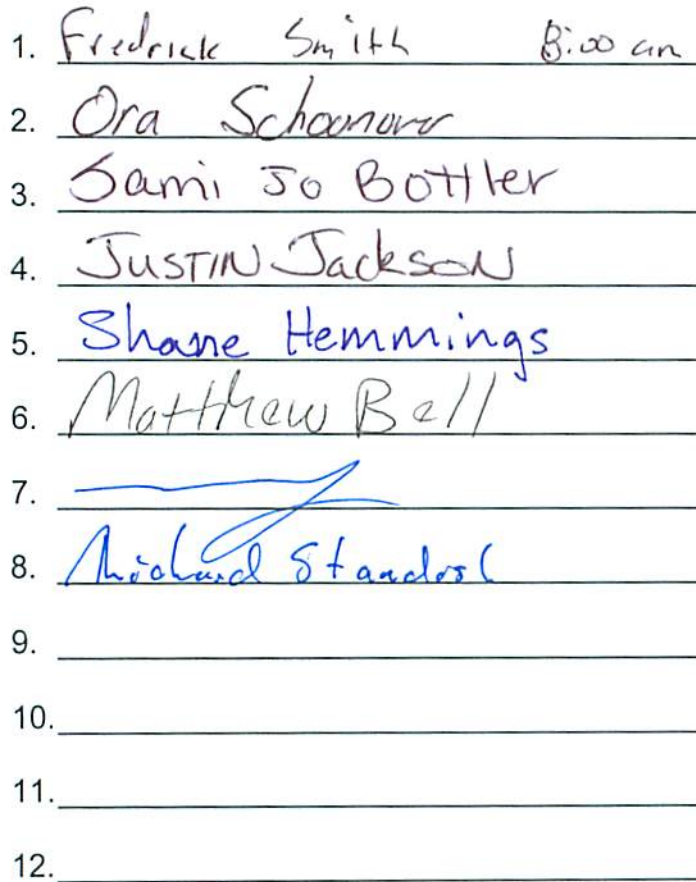 1. Fredrick Smith 8:00 am
2. Ora Schoonover
3. Sami Jo Bottler
4. JUSTIN JacksoN
5. Shane Hemmings
6. Matthew Bell
7.
8.
9.
10.
11.
12.